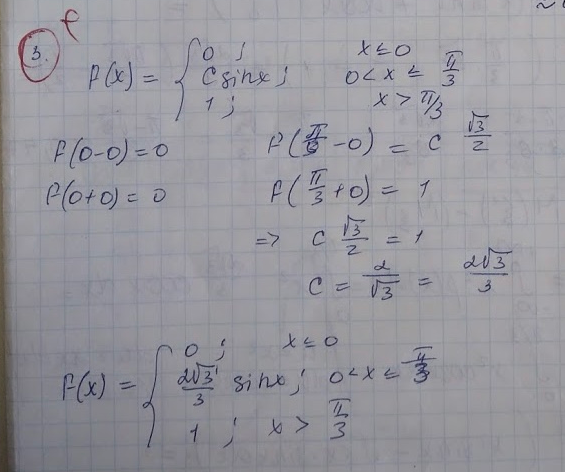 3.
f(x) = { 0 ; x ≤ 0
C sinx ; 0 < x ≤ π/3
1 ; x > π/3
f(0-0) = 0 f(π/3 - 0) = C √3/2
f(0+0) = 0 f(π/3 + 0) = 1
=> C √3/2 = 1
C = 2/√3 = 2√3/3
f(x) = { 0 ; x ≤ 0
2√3/3 sinx ; 0 < x ≤ π/3
1 ; x > π/3